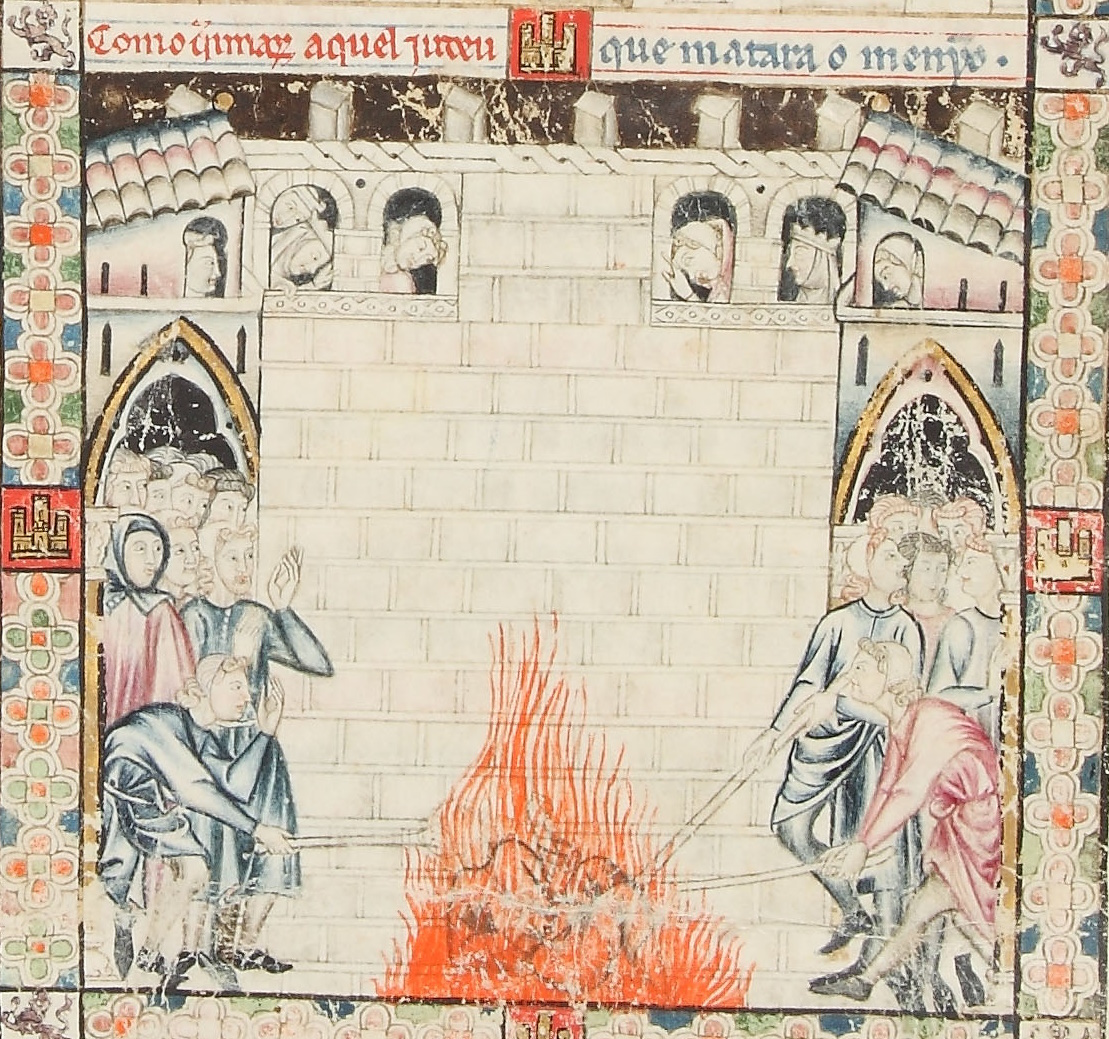 Como q̄imarō aquel judeu que matara o menỹo.